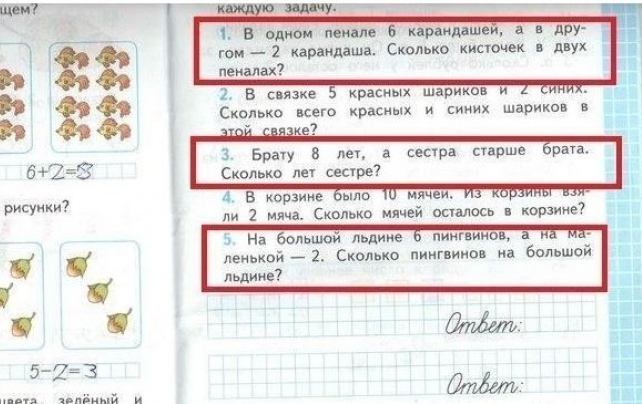 щем?
6+2=8
рисунки?
5-2=3
цвета, зелёный и
каждую задачу.
1. В одном пенале 6 карандашей, а в дру-
гом — 2 карандаша. Сколько кисточек в двух
пеналах?
2. В связке 5 красных шариков и 2 синих.
Сколько всего красных и синих шариков в
этой связке?
3. Брату 8 лет, а сестра старше брата.
Сколько лет сестре?
4. В корзине было 10 мячей. Из корзины взя-
ли 2 мяча. Сколько мячей осталось в корзине?
5. На большой льдине 6 пингвинов, а на ма-
ленькой — 2. Сколько пингвинов на большой
льдине?
Ответ:
Ответ: